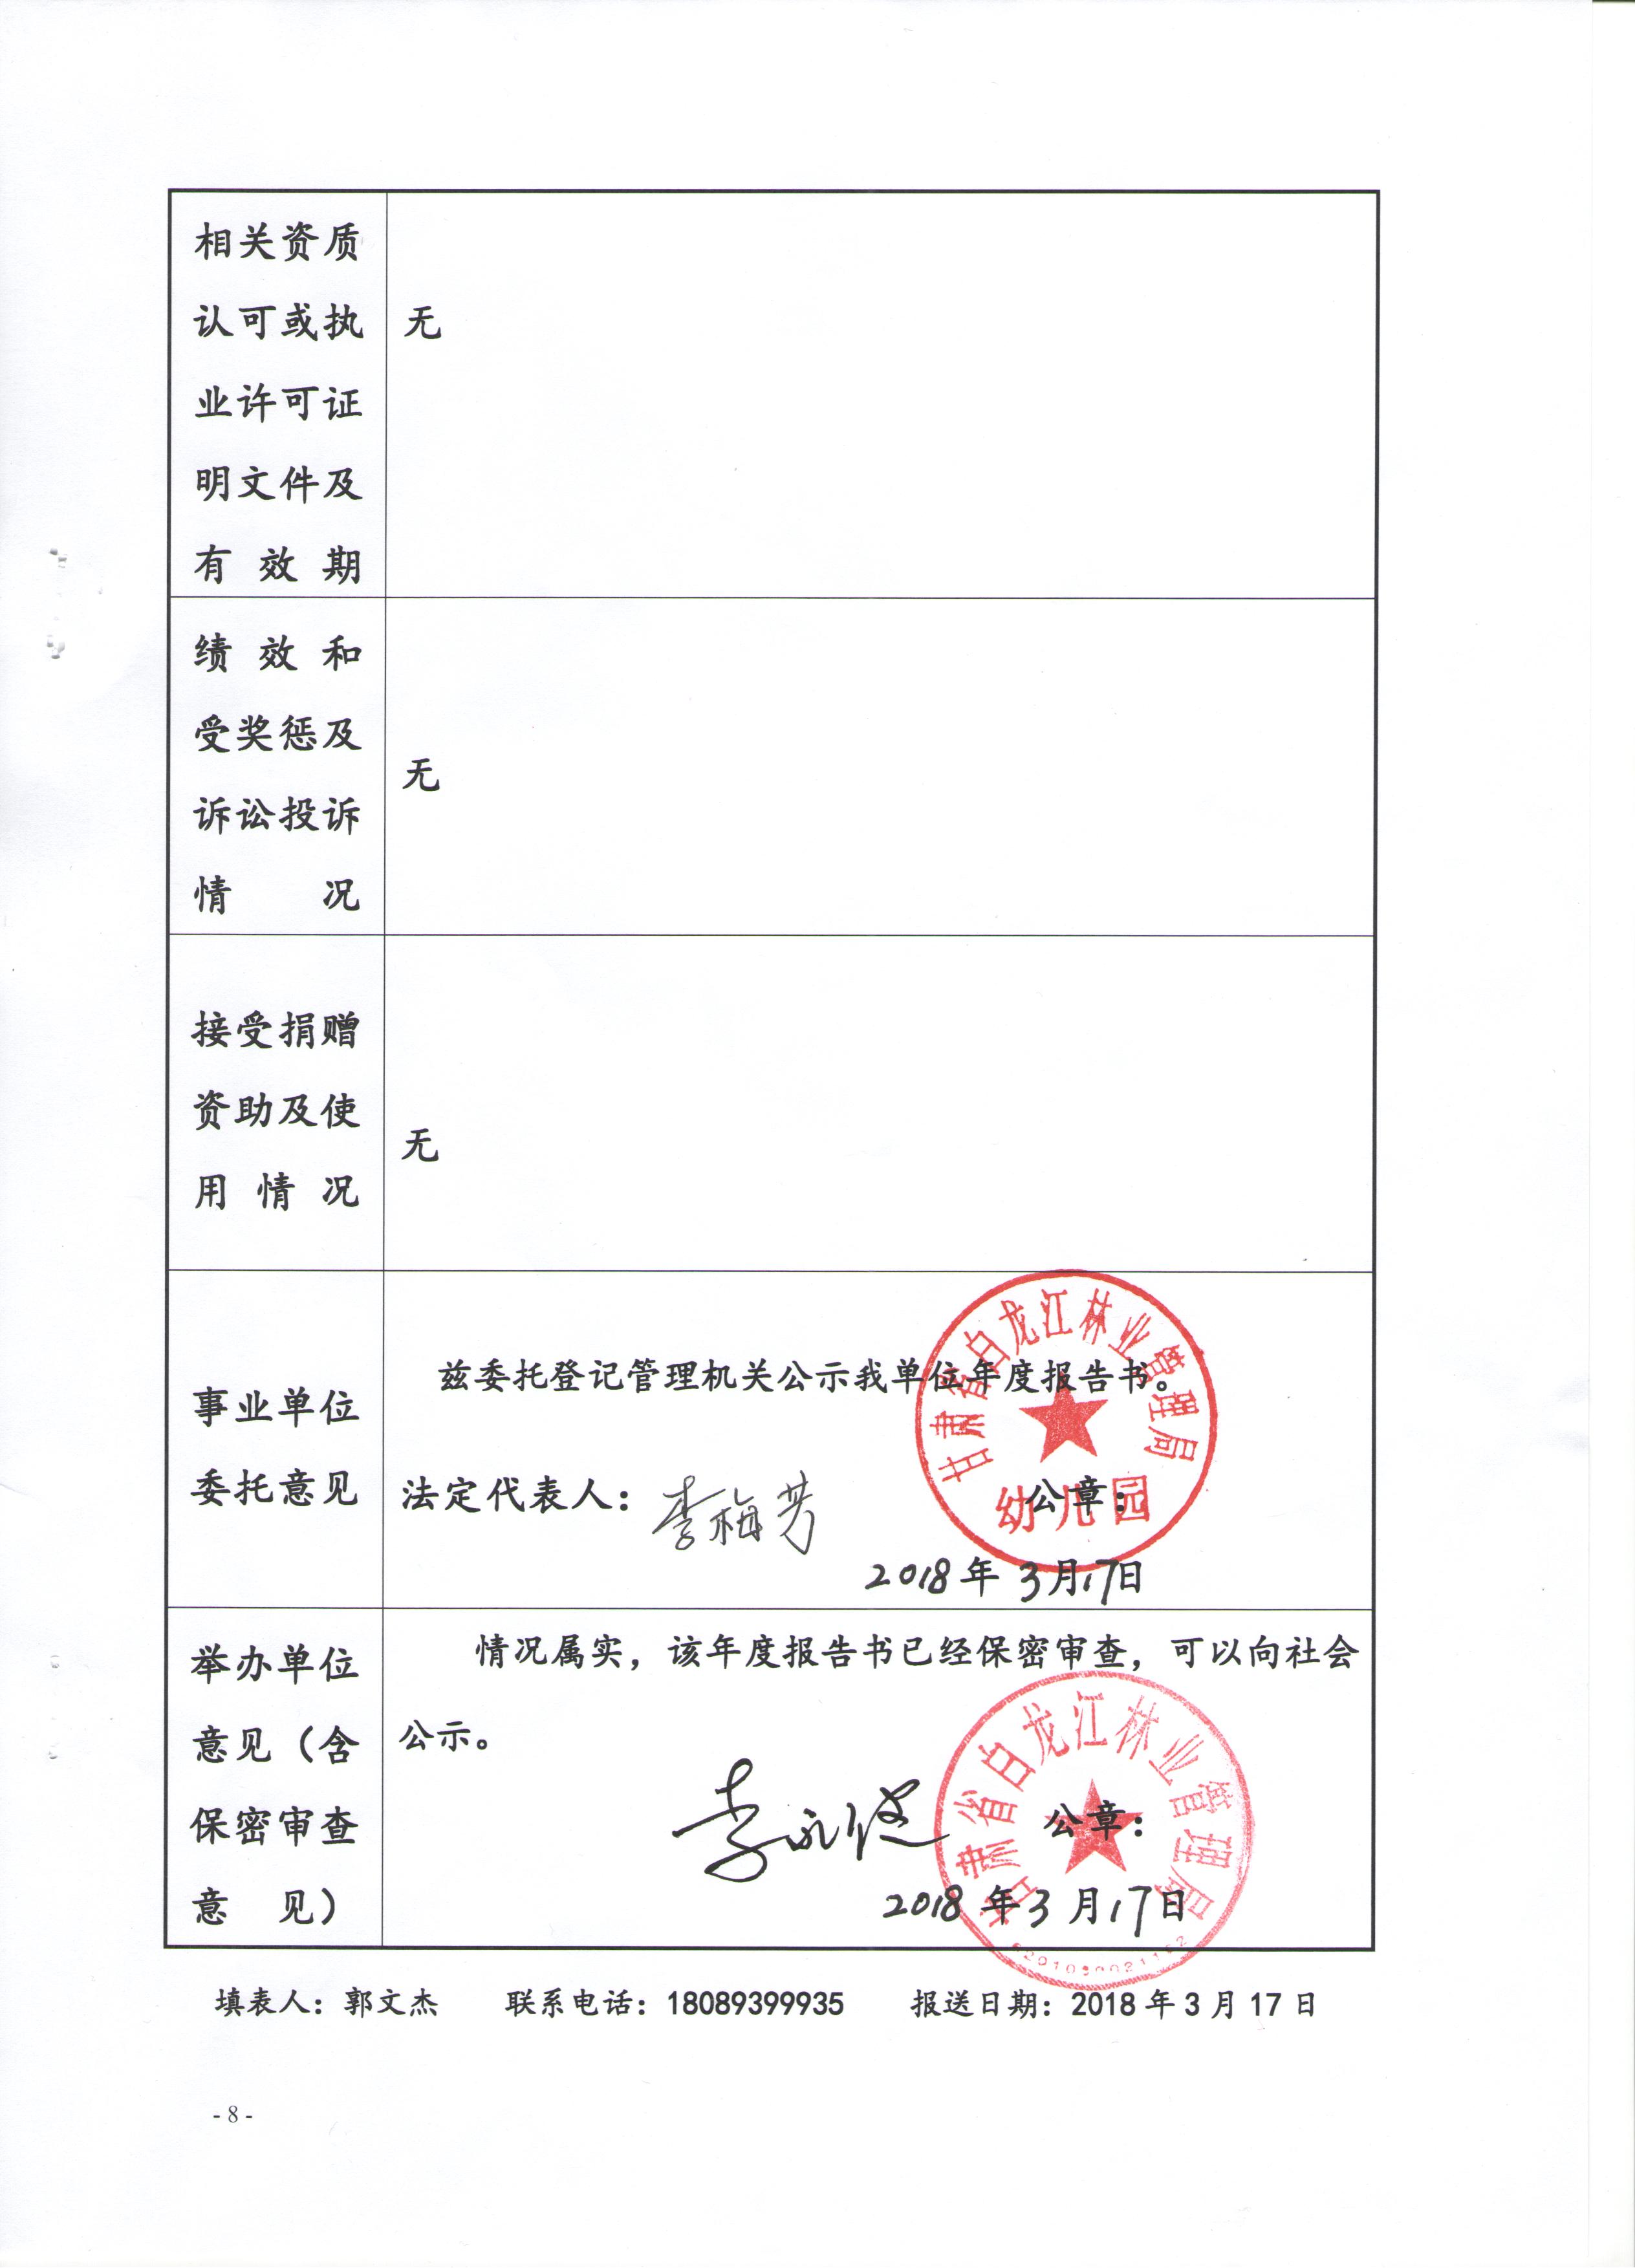 相关资质
认可或执
业许可证
明文件及
有效期
无
绩效和
受奖惩及
诉讼投诉
情况
无
接受捐赠
资助及使
用情况
无
事业单位
委托意见
兹委托登记管理机关公示我单位年度报告书。
法定代表人：李梅芳
公章：
2018年3月17日
甘肃省白龙江林业管理局
幼儿园
举办单位
意见（含
保密审查
意见）
情况属实，该年度报告书已经保密审查，可以向社会
公示。
公章：
2018年3月17日
甘肃省白龙江林业管理局
填表人：郭文杰 联系电话：18089399935 报送日期：2018年3月17日
- 8 -